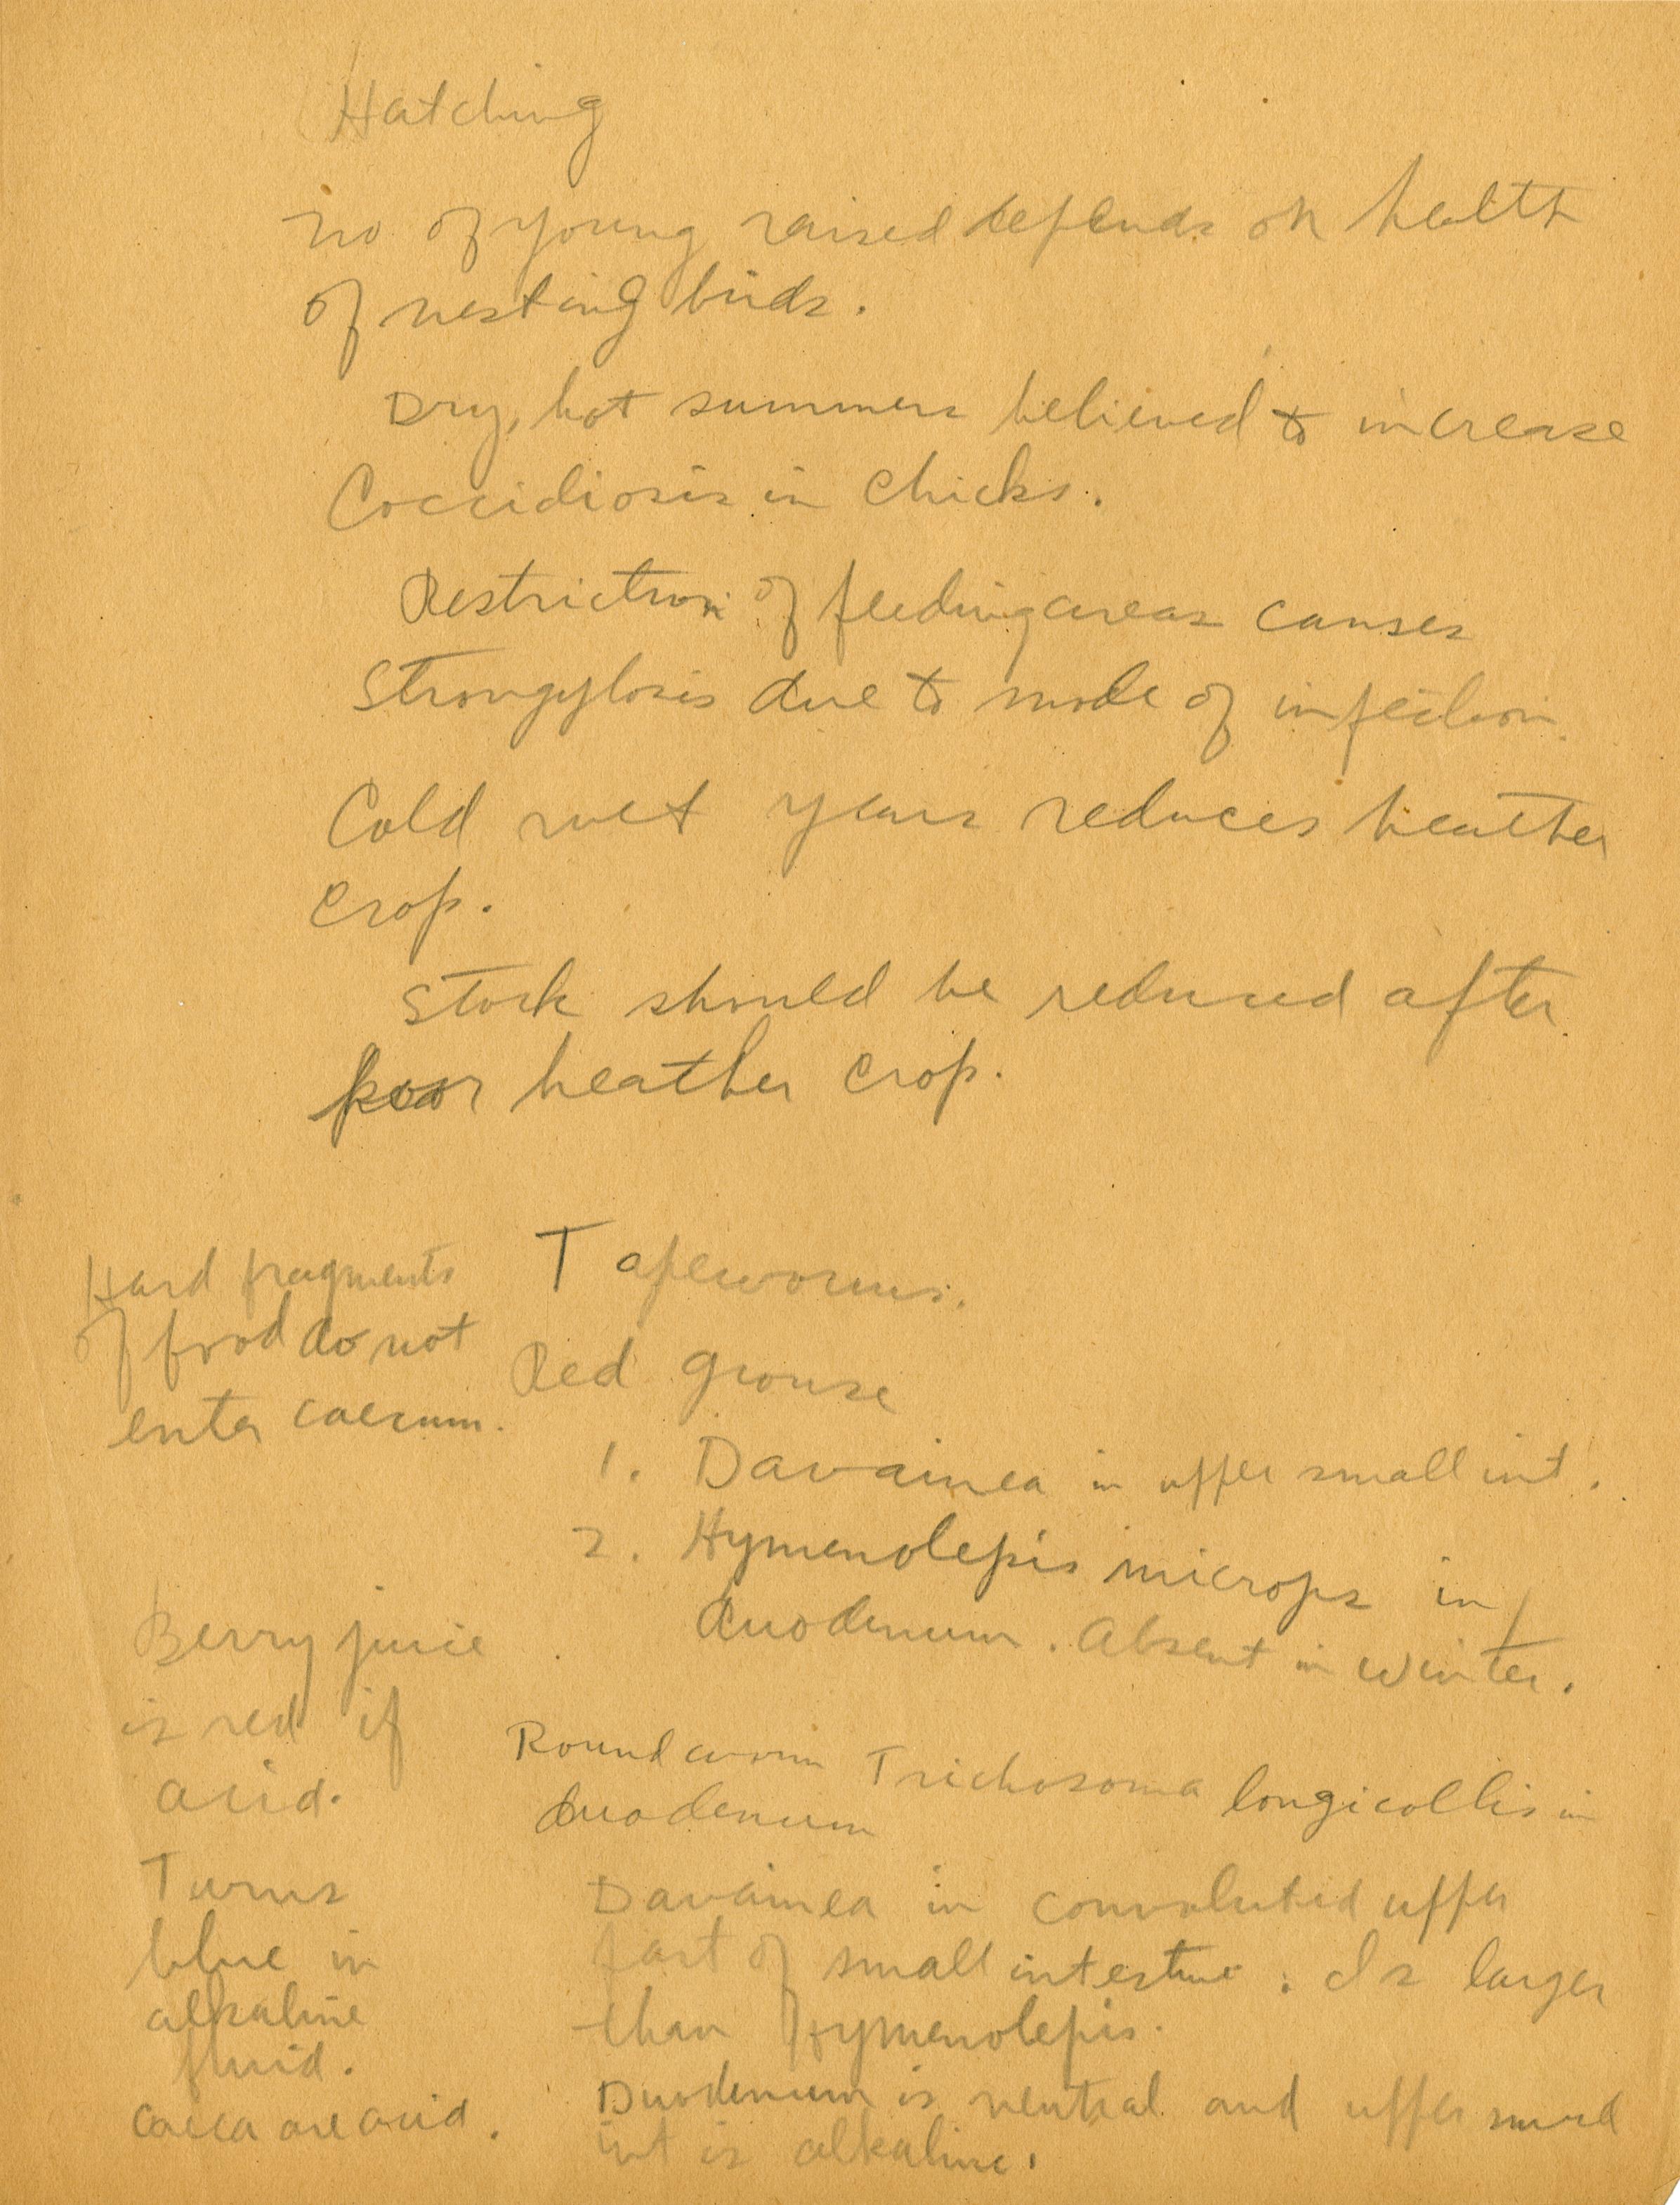 Hatching
No of young raised depends on health
of nesting birds.
Dry, hot summers believed to increase
Coccidiosis in Chicks.
Restriction of feeding areas causes
Strongylosis due to mode of infection.
Cold wet years reduces heather
Crop.
Stock should be reduced after
poor heather crop.
Hard fragments
of food do not
enter caecum.
Tapeworms.
Red grouse
1. Davainea in upper small int.
2. Hymenolepis microps in
duodenum. Absent in winter.
Berry juice
is red if
acid.
Turns
blue in
alkaline
fluid.
Caeca are acid.
Roundworm Trichosoma longicollis in
duodenum
Davainea in convoluted upper
part of small intestine. Is larger
than Hymenolepis.
Duodenum is neutral and upper small
int is alkaline.